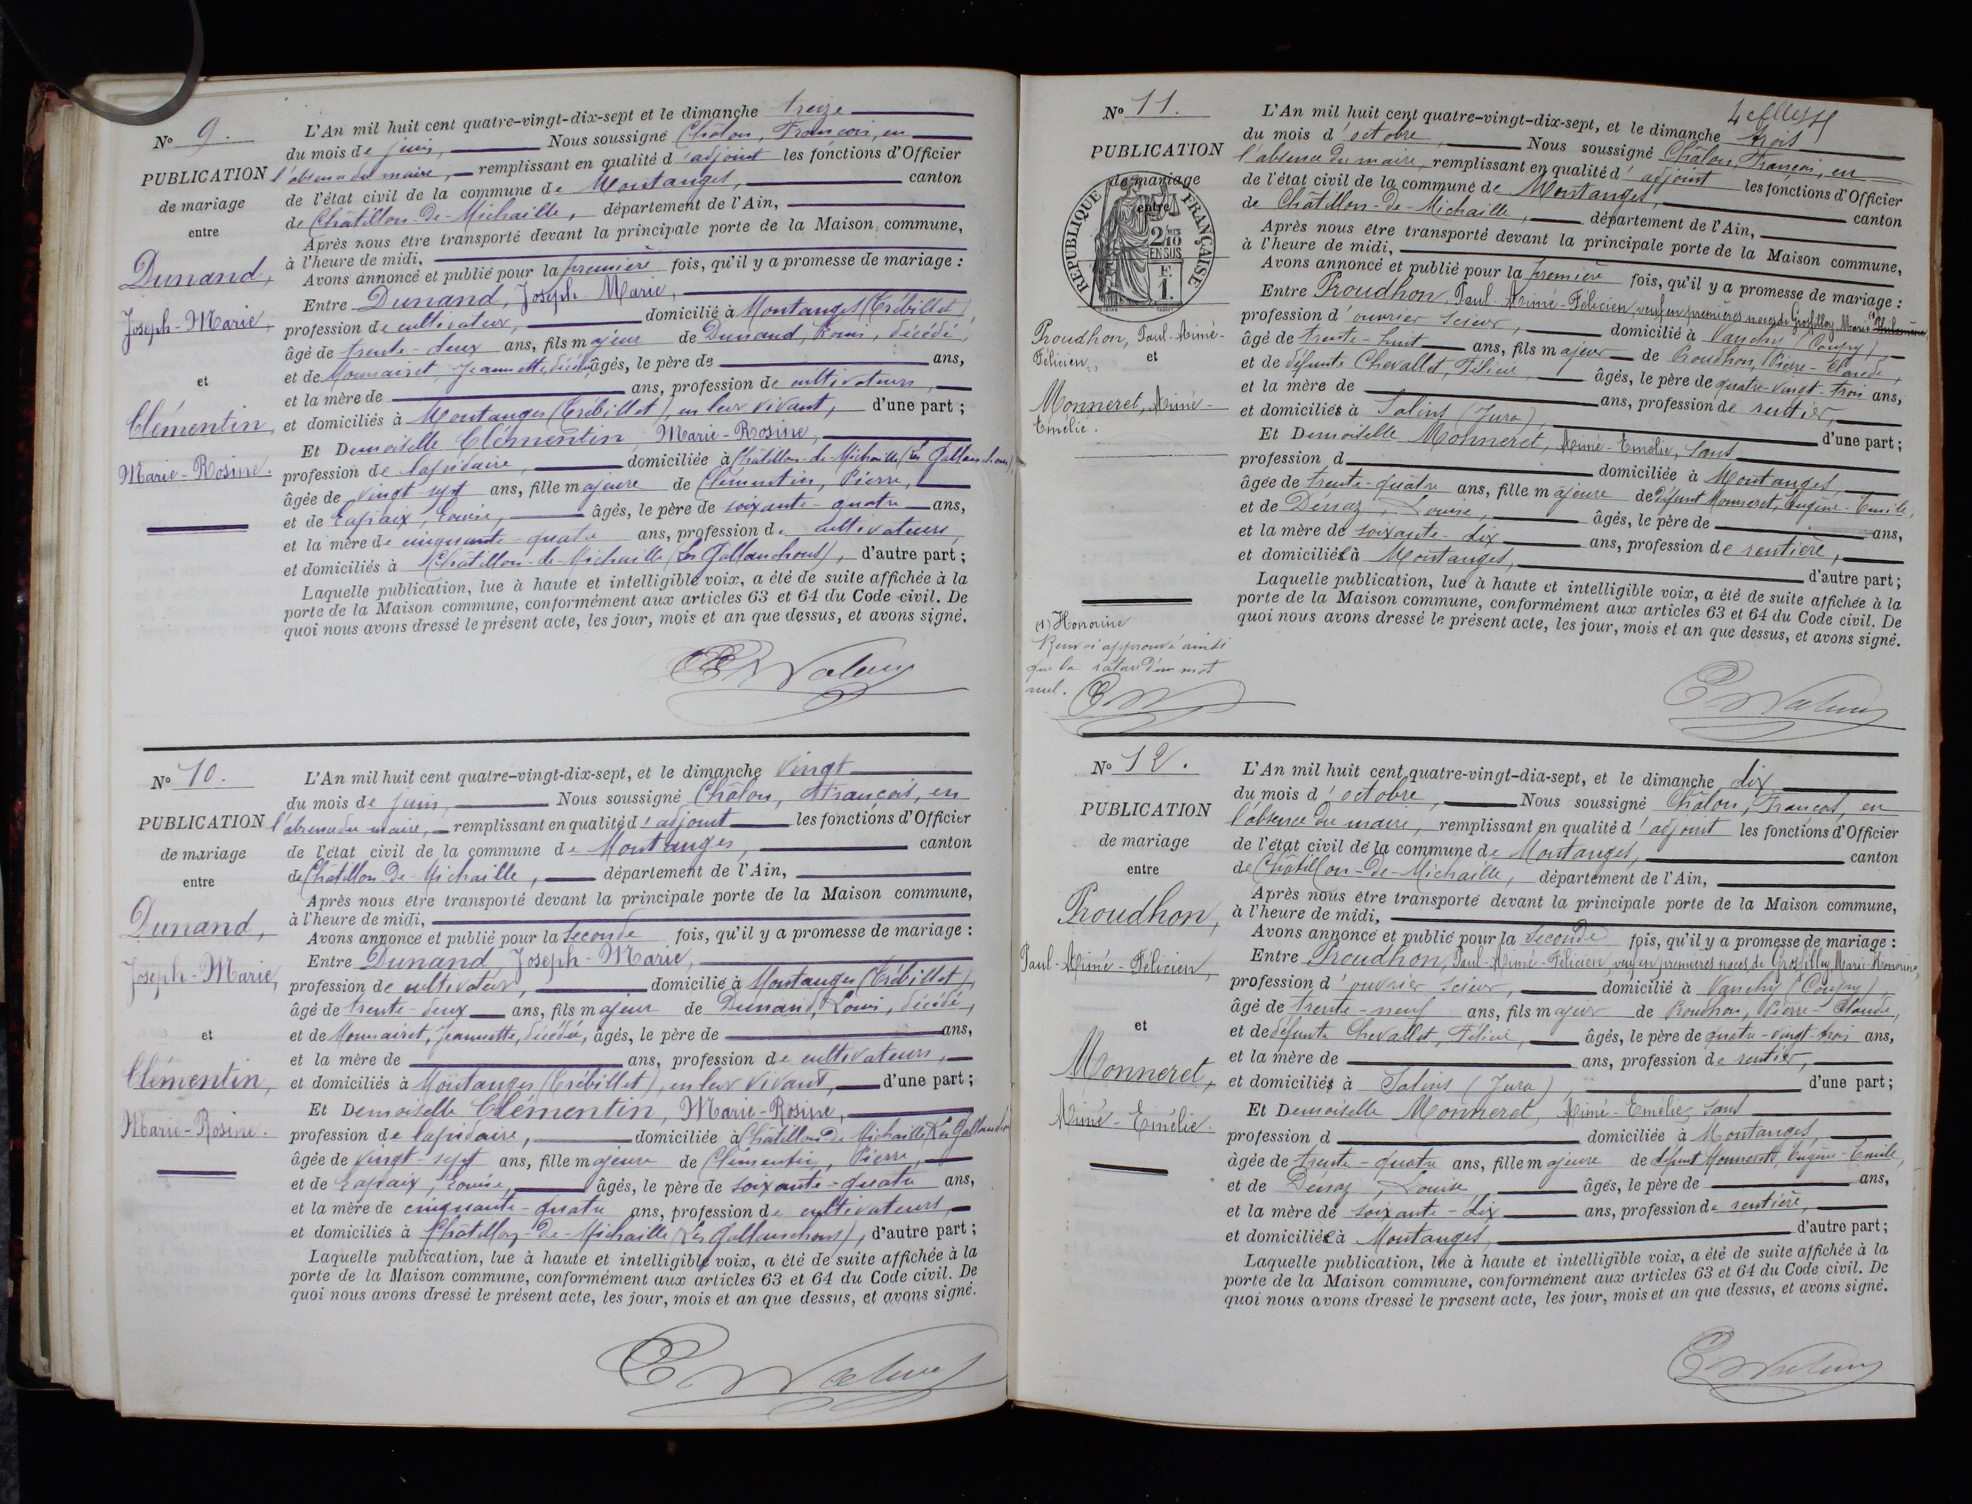 N° 9.
PUBLICATION
de mariage
entre
Dunand,
Joseph-Marie,
et
Clémentin,
Marie-Rosine.
L'An mil huit cent quatre-vingt-dix-sept et le dimanche treize
du mois de juin, Nous soussigné Châlon, François, en
l'absence du maire, remplissant en qualité d'adjoint les fonctions d'Officier
de l'état civil de la commune de Montanges, canton
de Châtillon-de-Michaille, département de l'Ain,
Après nous être transporté devant la principale porte de la Maison commune,
à l'heure de midi,
Avons annoncé et publié pour la première fois, qu'il y a promesse de mariage :
Entre Dunand, Joseph Marie,
profession de cultivateur, domicilié à Montanges (Trébillet),
âgé de trente-deux ans, fils majeur de Dunand, Louis, décédé,
et de Monnairet, Jeannette, décédée, âgés, le père de ans,
et la mère de ans, profession de cultivateurs,
et domiciliés à Montanges (Trébillet) en leur vivant, d'une part ;
Et Demoiselle Clémentin, Marie-Rosine,
profession de lapidaire, domiciliée à Châtillon-de-Michaille (Les Gallanchons)
âgée de vingt-sept ans, fille majeure de Clémentin, Pierre,
et de Lapraix, Louise, âgés, le père de soixante-quatre ans,
et la mère de cinquante-quatre ans, profession de cultivateurs,
et domiciliés à Châtillon-de-Michaille (Les Gallanchons), d'autre part ;
Laquelle publication, lue à haute et intelligible voix, a été de suite affichée à la
porte de la Maison commune, conformément aux articles 63 et 64 du Code civil. De
quoi nous avons dressé le présent acte, les jour, mois et an que dessus, et avons signé.
N° 10.
PUBLICATION
de mariage
entre
Dunand,
Joseph-Marie,
et
Clémentin,
Marie-Rosine.
L'An mil huit cent quatre-vingt-dix-sept, et le dimanche vingt
du mois de juin, Nous soussigné Châlon, François, en
l'absence du maire, remplissant en qualité d'adjoint les fonctions d'Officier
de l'état civil de la commune de Montanges, canton
de Châtillon-de-Michaille, département de l'Ain,
Après nous être transporté devant la principale porte de la Maison commune,
à l'heure de midi,
Avons annoncé et publié pour la seconde fois, qu'il y a promesse de mariage :
Entre Dunand Joseph-Marie,
profession de cultivateur, domicilié à Montanges (Trébillet),
âgé de trente-deux ans, fils majeur de Dunand, Louis, décédé,
et de Monnairet, Jeannette, décédée, âgés, le père de ans,
et la mère de ans, profession de cultivateurs,
et domiciliés à Montanges (Trébillet), en leur vivant, d'une part ;
Et Demoiselle Clémentin, Marie-Rosine,
profession de lapidaire, domiciliée à Châtillon-de-Michaille (Les Gallanchons)
âgée de vingt-sept ans, fille majeure de Clémentin, Pierre,
et de Lapraix, Louise, âgés, le père de soixante-quatre ans,
et la mère de cinquante-quatre ans, profession de cultivateurs,
et domiciliés à Châtillon-de-Michaille (Les Gallanchons), d'autre part ;
Laquelle publication, lue à haute et intelligible voix, a été de suite affichée à la
porte de la Maison commune, conformément aux articles 63 et 64 du Code civil. De
quoi nous avons dressé le présent acte, les jour, mois et an que dessus, et avons signé.
N° 11.
PUBLICATION
de mariage
entre
RÉPUBLIQUE FRANÇAISE
2/10 EN SUS
F. 1.
Proudhon, Paul-Aimé-
Félicien,
et
Monneret, Aimé-
Emélie.
(1) Honorine
Renvoi approuvé ainsi
que la rature d'un mot
nul.
4 feuille
L'An mil huit cent quatre-vingt-dix-sept, et le dimanche trois
du mois d'octobre, Nous soussigné Châlon, François, en
l'absence du maire, remplissant en qualité d'adjoint les fonctions d'Officier
de l'état civil de la commune de Montanges, canton
de Châtillon-de-Michaille, département de l'Ain,
Après nous être transporté devant la principale porte de la Maison commune,
à l'heure de midi,
Avons annoncé et publié pour la première fois, qu'il y a promesse de mariage :
Entre Proudhon, Paul-Aimé-Félicien, veuf en premières noces de Grosfilley Marie (1)
profession d'ouvrier scieur, domicilié à Vanchy (Coupy),
âgé de trente-huit ans, fils majeur de Proudhon, Pierre-Claude,
et de défunte Chevallet, Féline, âgés, le père de quatre-vingt-trois ans,
et la mère de ans, profession de rentier,
et domiciliés à Salins (Jura), d'une part ;
Et Demoiselle Monneret, Aimé-Emélie, sans
profession d domiciliée à Montanges,
âgée de trente-quatre ans, fille majeure de défunt Monneret, Eugène-Emile,
et de Déniaz, Louise, âgés, le père de ans,
et la mère de soixante-dix ans, profession de rentière,
et domiciliée à Montanges, d'autre part ;
Laquelle publication, lue à haute et intelligible voix, a été de suite affichée à la
porte de la Maison commune, conformément aux articles 63 et 64 du Code civil. De
quoi nous avons dressé le présent acte, les jour, mois et an que dessus, et avons signé.
N° 12.
PUBLICATION
de mariage
entre
Proudhon,
Paul-Aimé-Félicien,
et
Monneret,
Aimé-Emélie.
L'An mil huit cent quatre-vingt-dia-sept, et le dimanche dix
du mois d'octobre, Nous soussigné Châlon, François, en
l'absence du maire, remplissant en qualité d'adjoint les fonctions d'Officier
de l'état civil de la commune de Montanges, canton
de Châtillon-de-Michaille, département de l'Ain,
Après nous être transporté devant la principale porte de la Maison commune,
à l'heure de midi,
Avons annoncé et publié pour la seconde fois, qu'il y a promesse de mariage :
Entre Proudhon, Paul-Aimé-Félicien, veuf en premières noces de Grosfilley, Marie-Honorine,
profession d'ouvrier scieur, domicilié à Vanchy (Coupy),
âgé de trente-neuf ans, fils majeur de Proudhon, Pierre-Claude,
et de défunte Chevallet, Féline, âgés, le père de quatre-vingt-trois ans,
et la mère de ans, profession de rentier,
et domiciliés à Salins (Jura), d'une part ;
Et Demoiselle Monneret, Aimé-Emélie, sans
profession d domiciliée à Montanges,
âgée de trente-quatre ans, fille majeure de défunt Monneret, Eugène-Emile,
et de Déniaz, Louise, âgés, le père de ans,
et la mère de soixante-dix ans, profession de rentière,
et domiciliée à Montanges, d'autre part ;
Laquelle publication, lue à haute et intelligible voix, a été de suite affichée à la
porte de la Maison commune, conformément aux articles 63 et 64 du Code civil. De
quoi nous avons dressé le présent acte, les jour, mois et an que dessus, et avons signé.